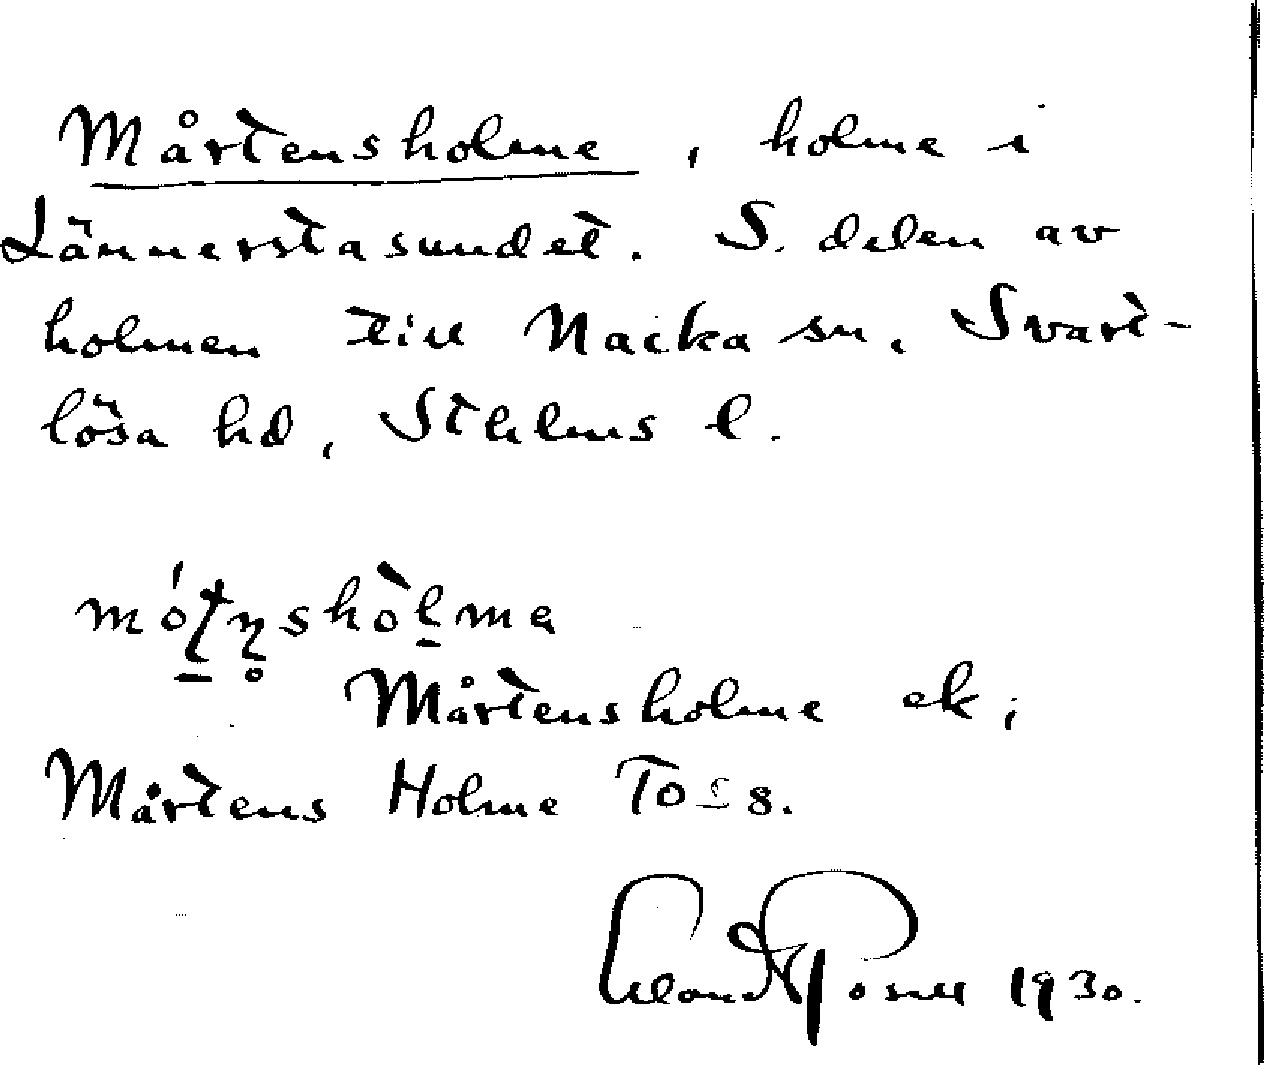 Mårtensholme, holme i
Lännerstasundet. S. delen av
holmen till Nacka sn, Svart-
lösa hd, Sthlms l.
mó̱ṯn̥shòḻmə
Mårtensholme ek;
Mårtens Holme To
1930.